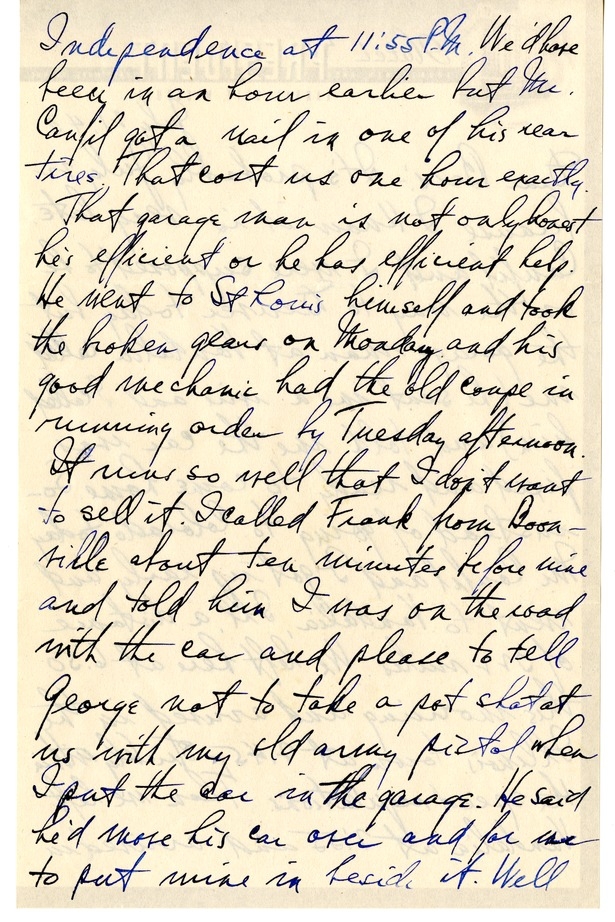 Independence at 11:55 P.M. We'd have
been in an hour earlier but Mr.
Canfil got a nail in one of his rear
tires. That cost us one hour exactly.
That garage man is not only honest
he's efficient or he has efficient help.
He went to St Louis himself and took
the broken gears on Monday and his
good mechanic had the old coupe in
running order by Tuesday afternoon.
It runs so well that I don't want
to sell it. I called Frank from Boon-
ville about ten minutes before nine
and told him I was on the road
with the car and please to tell
George not to take a pot shot at
us with my old army pistol when
I put the car in the garage. He said
he'd move his car over and for me
to put mine in beside it. Well